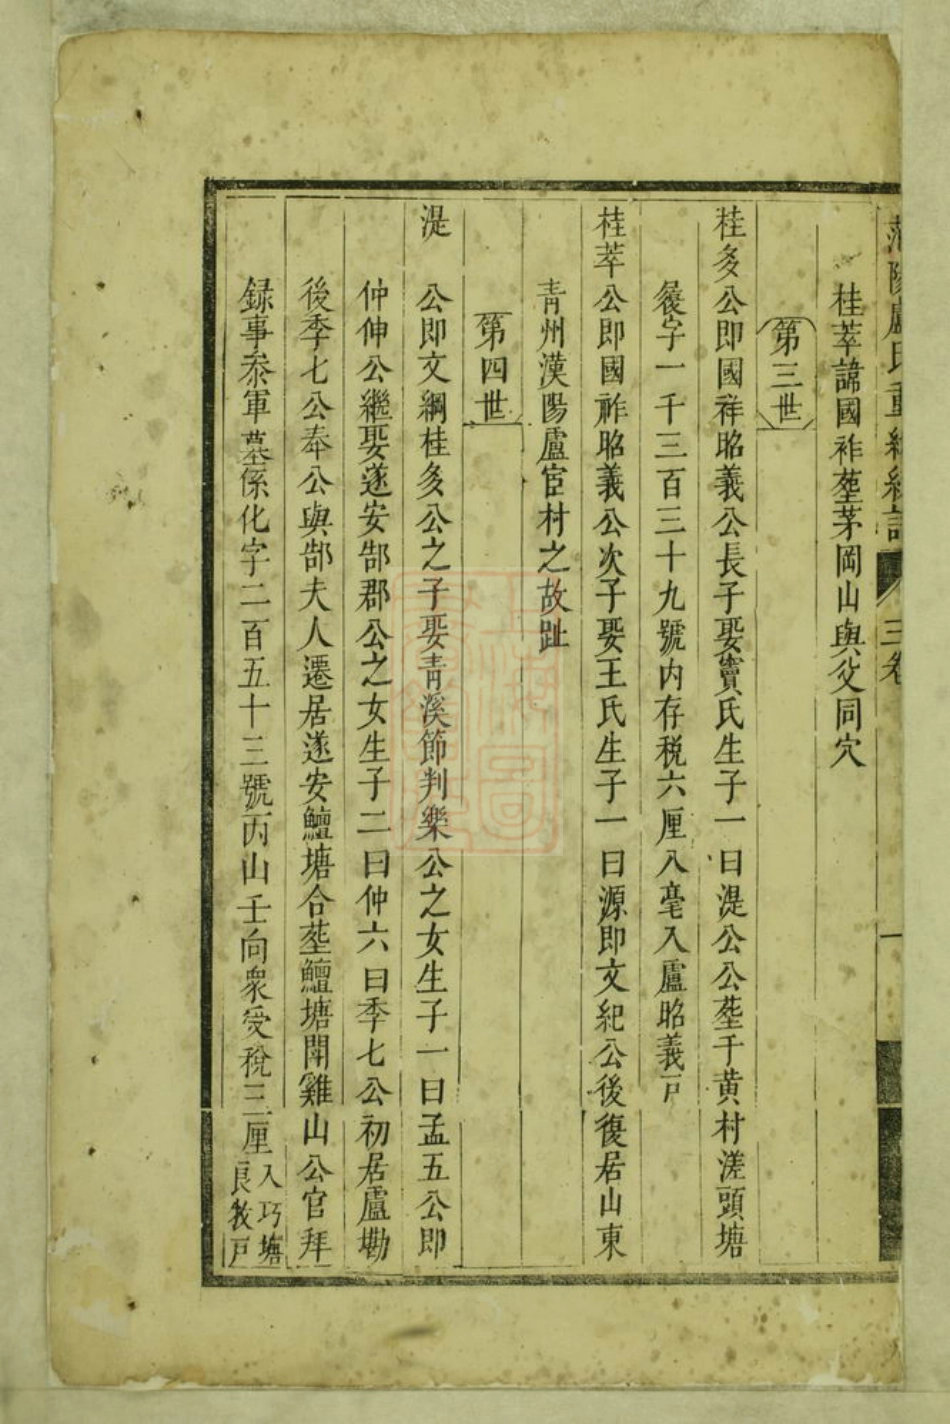 盧氏重 三卷
一
桂萃諱國祚塟茅岡山與父同穴
第三世
桂多公即國祥昭義公長子娶竇氏生子一曰湜公公塟于黄村溠頭塘
㲪字一千三百三十九號内存税六厘八毫入盧昭義戸
桂萃公即國祚昭義公次子娶王氏生子一曰源即文紀公後復居山東
青州漢陽盧宦村之故趾
第四世
湜 公即文綱桂多公之子娶青溪節判樂公之女生子一曰孟五公即
仲伸公繼娶遂安郜郡公之女生子二曰仲六曰季七公初居盧墈
後季七公奉公與郜夫人遷居遂安鱣塘合塟鱣塘閗雞山公官拜
録事叅軍墓係化字二百五十三號丙山壬向衆受稅三厘入巧塘
良敉戸